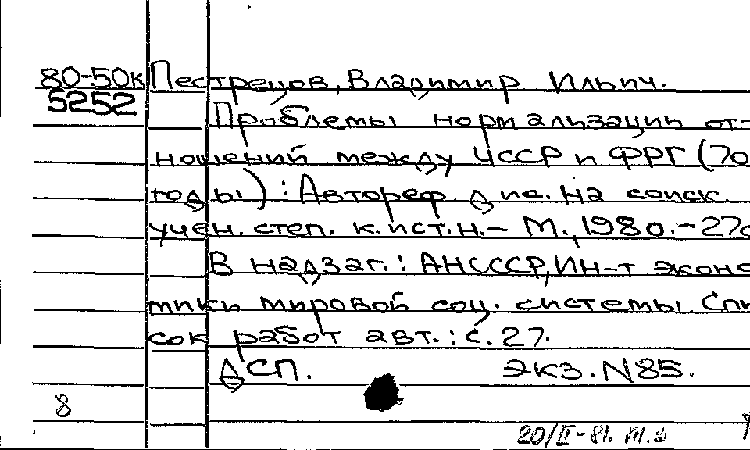 80-50к Пестрецов, Владимир Ильич.
5252
Проблемы нормализации от-
ношений между ЧССР и ФРГ (70
годы) : Автореф. дис. на соиск.
учен. степ. к. ист. н. - М., 1980. - 27с
В надзаг.: АН СССР, Ин-т эконо
мики мировой соц. системы Спи
сок работ авт.: с. 27.
ДСП. Экз. N85.
8
20/II-81.